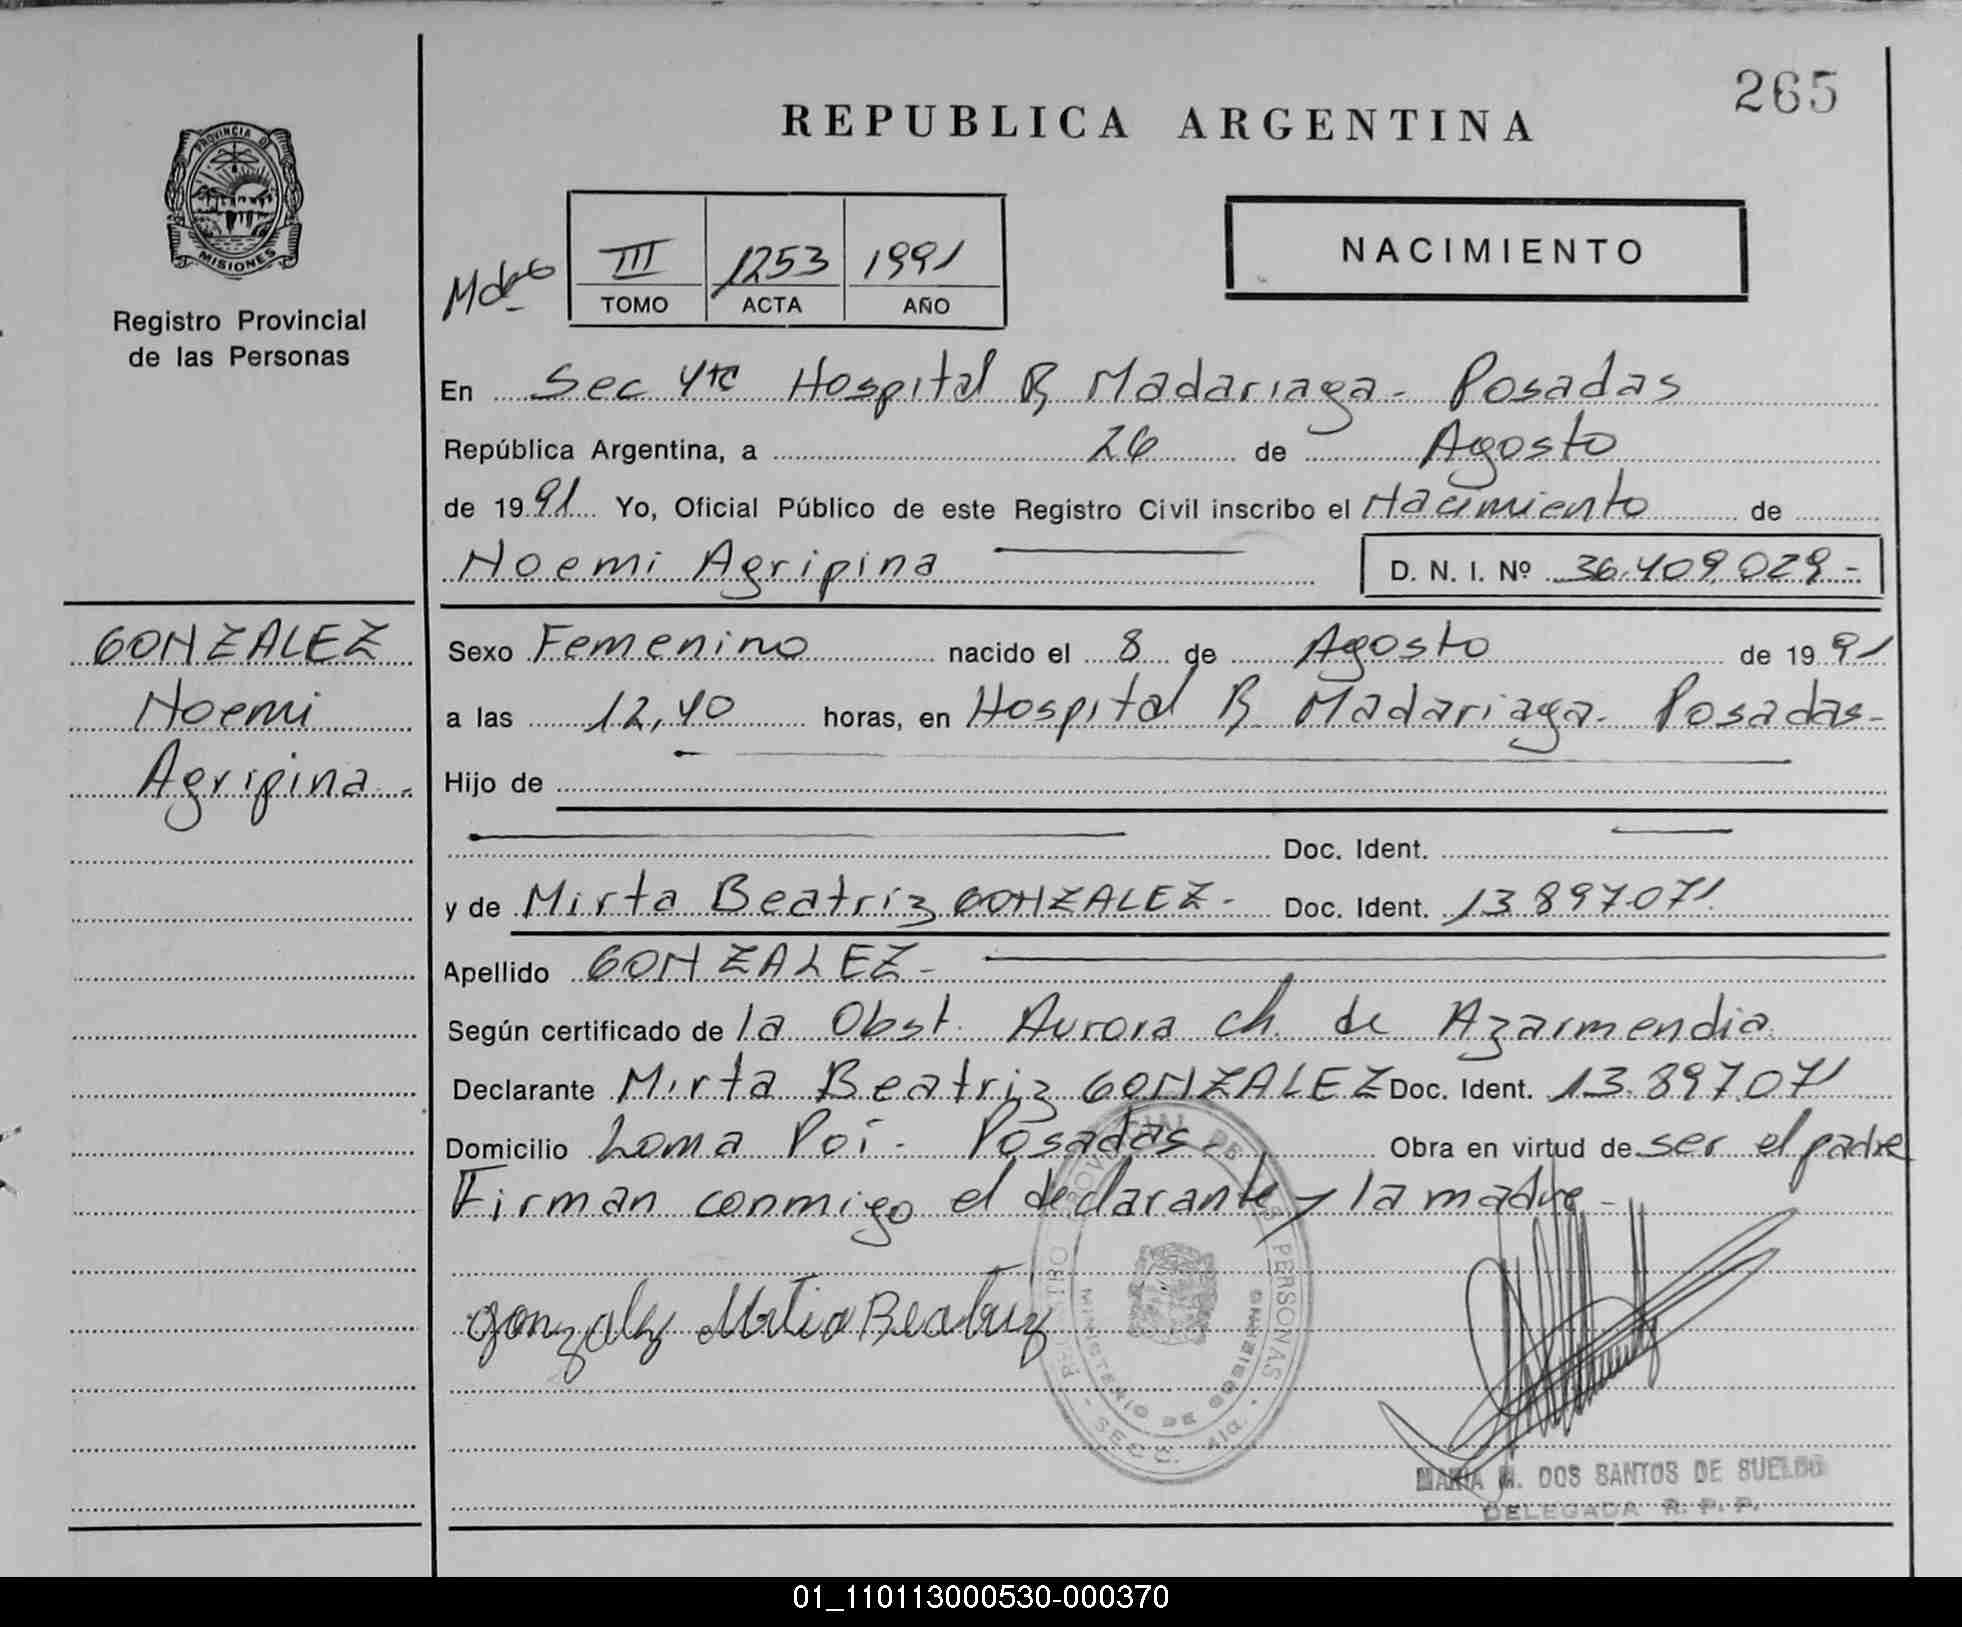 265
REPUBLICA ARGENTINA
PROVINCIA D
MISIONES
Registro Provincial
de las Personas
III 1253 1991
TOMO ACTA AÑO
NACIMIENTO
En Sec 4ta Hospital R Madariaga - Posadas
República Argentina, a 26 de Agosto
de 1991 Yo, Oficial Público de este Registro Civil inscribo el Nacimiento de
Noemi Agripina D. N. I. Nº 36.409.029 -
GONZALEZ
Noemi
Agripina -
Sexo Femenino nacido el 8 de Agosto de 1991
a las 12,40 horas, en Hospital R Madariaga - Posadas -
Hijo de
Doc. Ident.
y de Mirta Beatriz GONZALEZ - Doc. Ident. 13.897.071
Apellido GONZALEZ -
Según certificado de la Obst. Aurora ch. de Azarmendia
Declarante Mirta Beatriz GONZALEZ Doc. Ident. 13.897.071
Domicilio Loma Poí - Posadas - Obra en virtud de ser el padre
Firman conmigo el declarante y la madre -
Gonzalez Mirta Beatriz
REGISTRO PROVINCIAL DE LAS PERSONAS
MINISTERIO DE GOBIERNO
- SECC. 4ta. -
MARIA M. DOS SANTOS DE SUELDO
DELEGADA R. P. P.
01_110113000530-000370